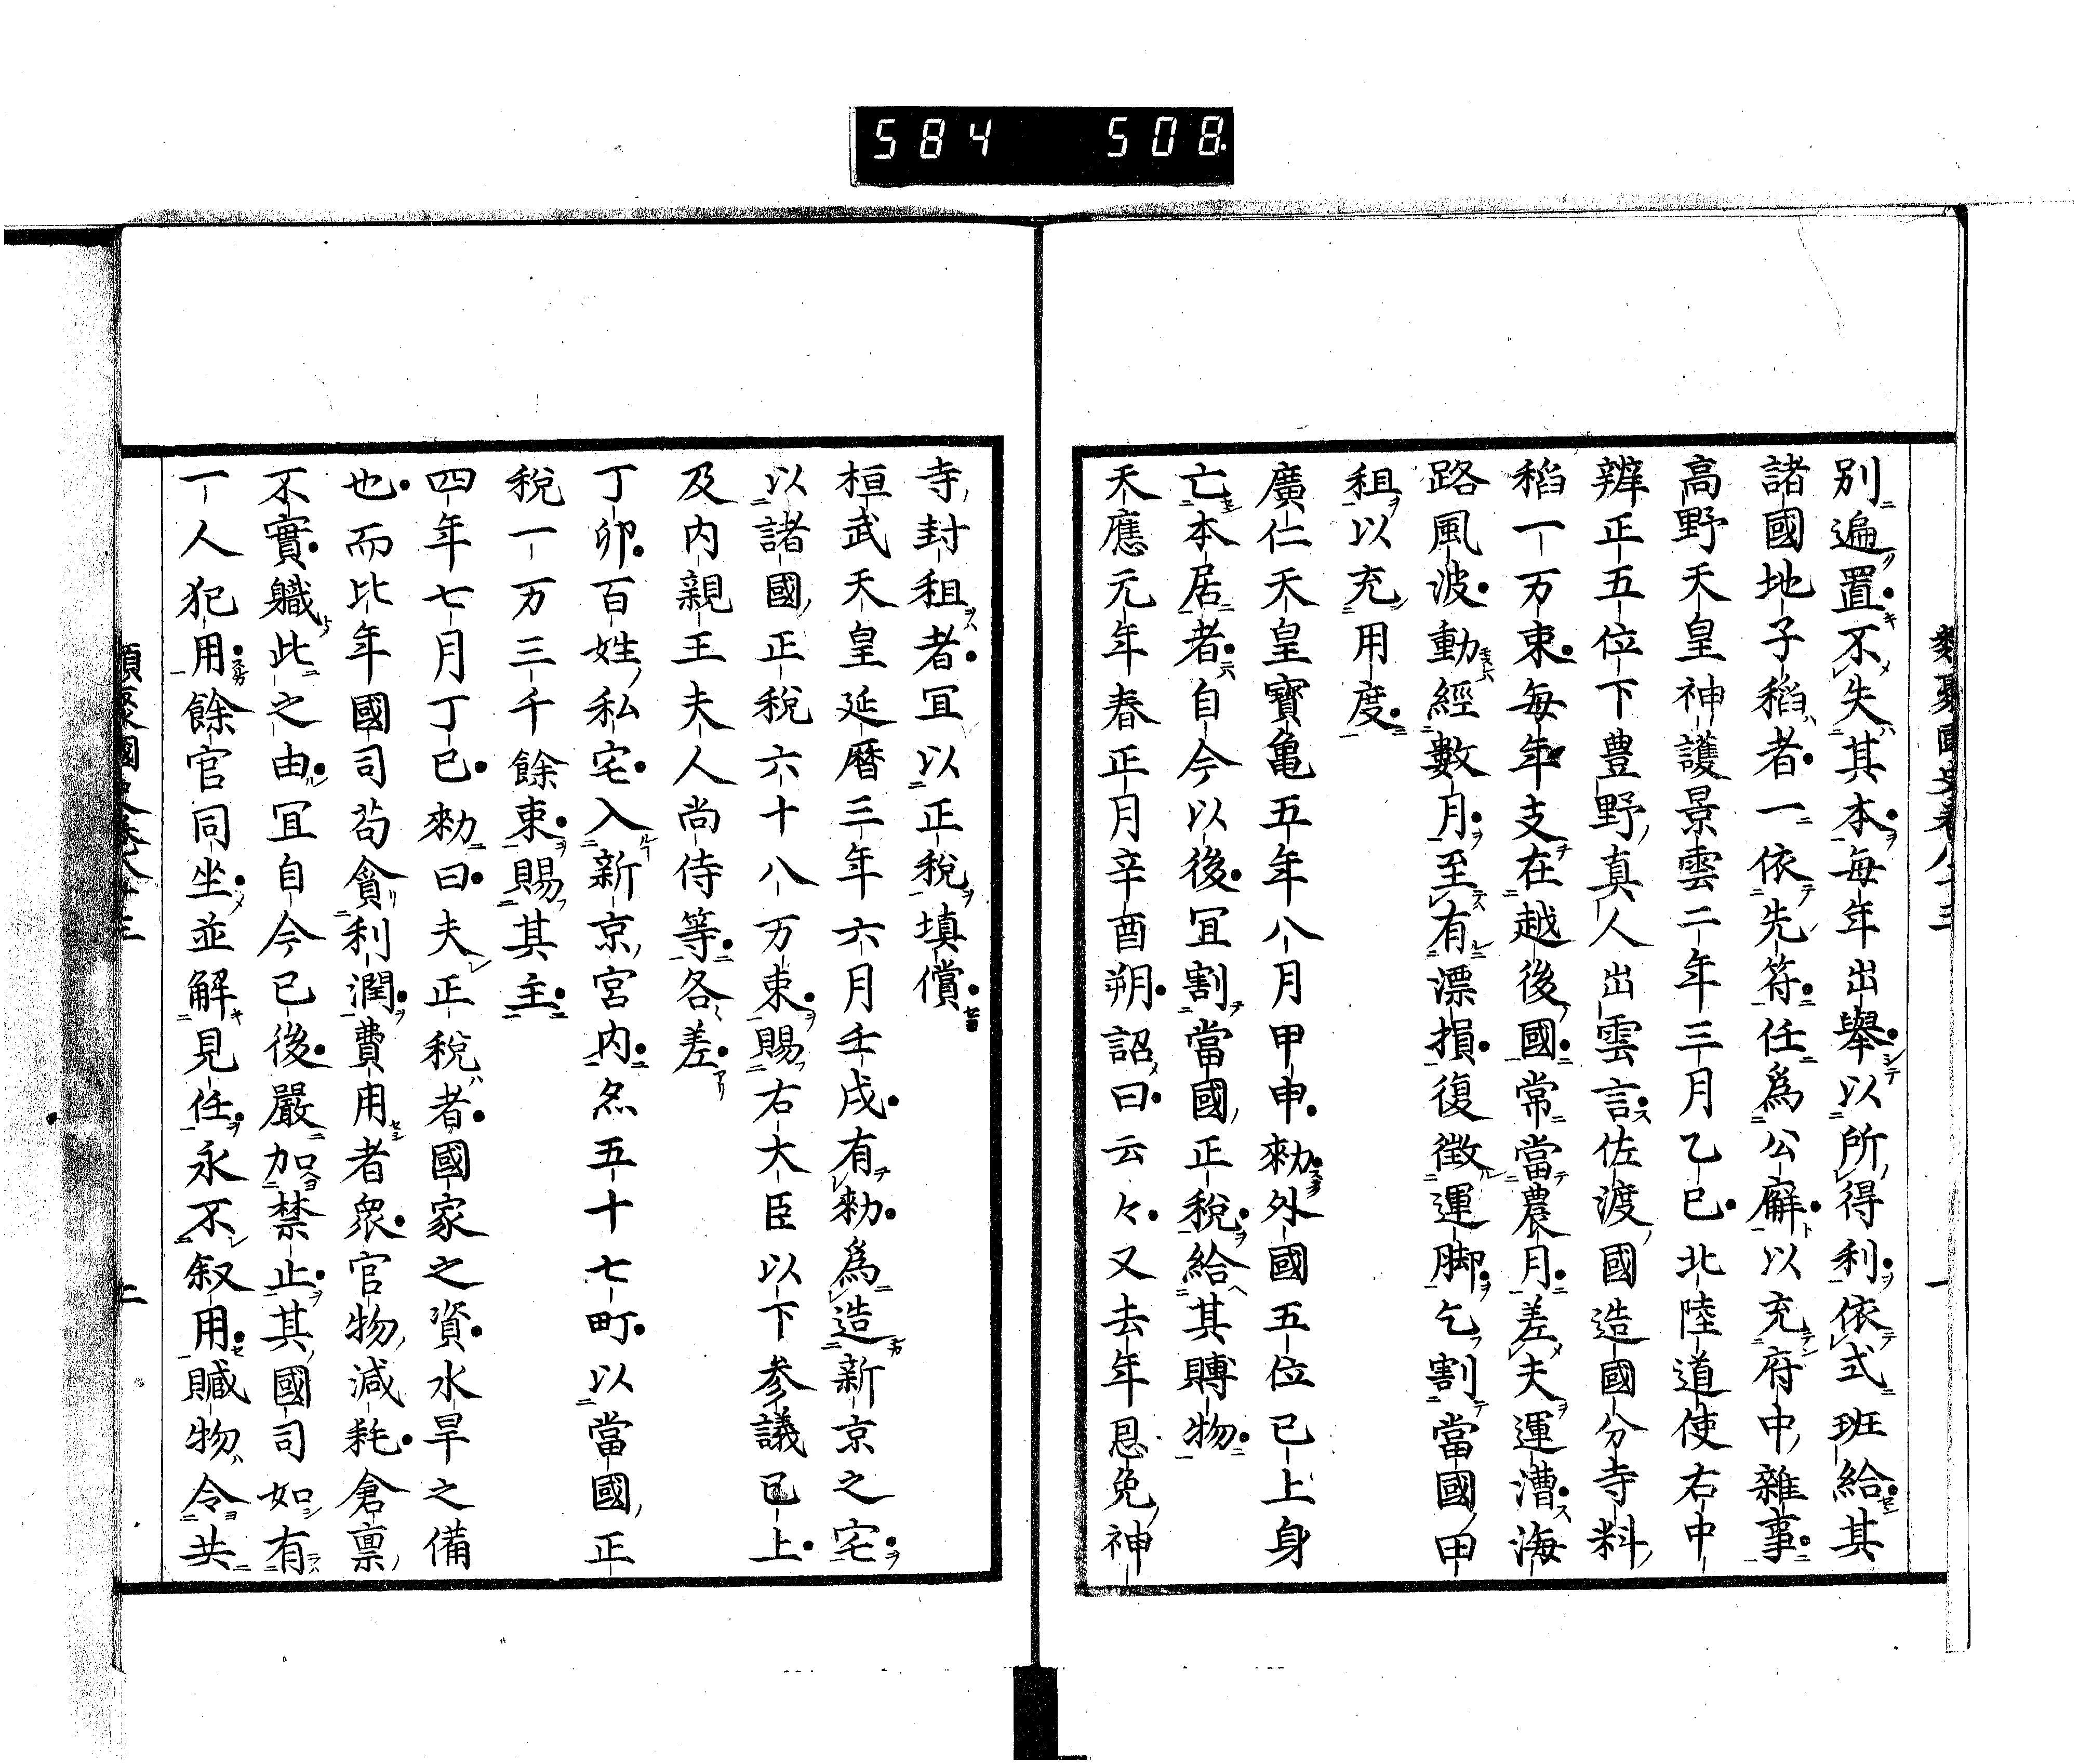 584 508
別遍置不失其本每年出擧以所得利依式班給其
諸國地子稻者一依先符任爲公廨以充府中雜事
高野天皇神護景雲二年三月乙巳北陸道使右中
辨正五位下豊野真人出雲言佐渡國造國分寺料
稻一万束每年支在越後國常當農月差夫運漕海
路風波動經數月至有漂損復徴運脚乞割當國田
租以充用度
廣仁天皇寳亀五年八月甲申勑外國五位已上身
亡本居者自今以後冝割當國正稅給其賻物
天應元年春正月辛酉朔詔曰云々又去年恩免神
寺封租者冝以正稅填償
桓武天皇延暦三年六月壬戌有勑爲造新京之宅
以諸國正稅六十八万束賜右大臣以下参議已上
及内親王夫人尚侍等各差
丁卯百姓私宅入新京宮内𤆼五十七町以當國正
稅一万三千餘束賜其主
四年七月丁巳勑曰夫正稅者國家之資水旱之備
也而比年國司苟貪利潤費用者衆官物減耗倉禀
不實軄此之由冝自今已後嚴加禁止其國司如有
一人犯用餘官同坐並解見任永不叙用贓物令共